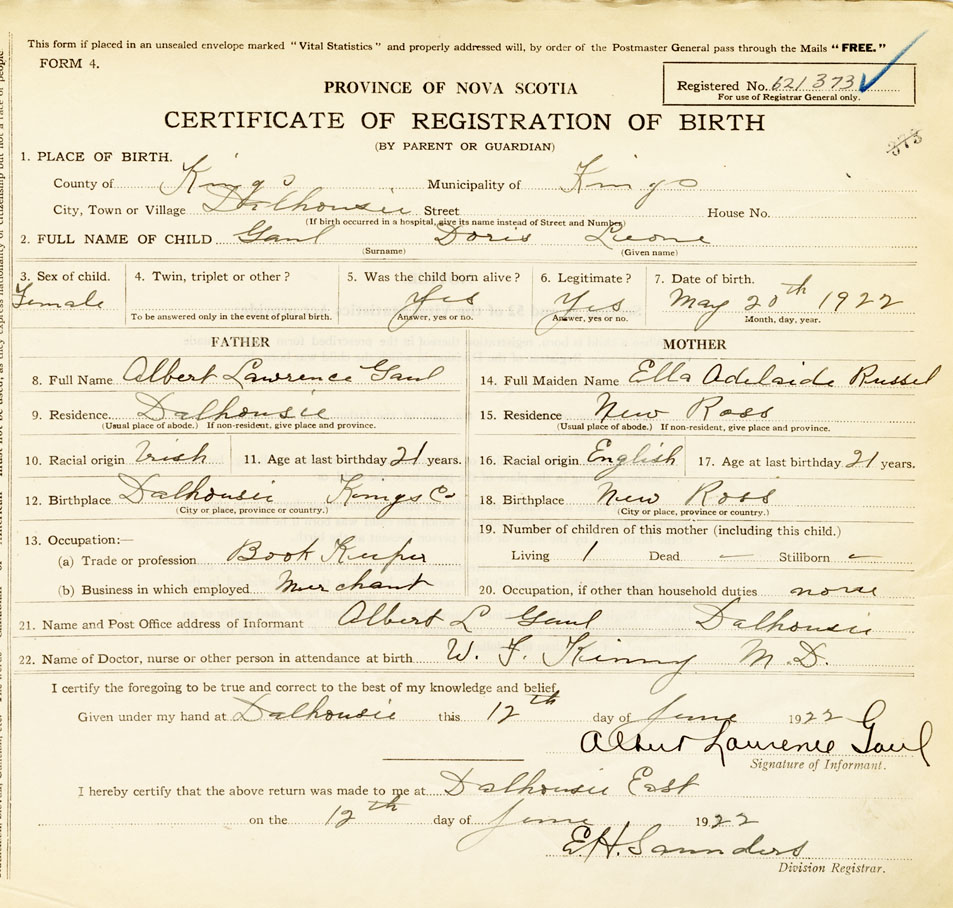 This form if placed in an unsealed envelope marked "Vital Statistics" and properly addressed will, by order of the Postmaster General pass through the Mails "FREE."
FORM 4.
Registered No. 621373
For use of Registrar General only.
PROVINCE OF NOVA SCOTIA
CERTIFICATE OF REGISTRATION OF BIRTH
(BY PARENT OR GUARDIAN)
373
1. PLACE OF BIRTH.
County of Kings Municipality of Kings
City, Town or Village Dalhousie Street House No.
(If birth occurred in a hospital, give its name instead of Street and Number)
2. FULL NAME OF CHILD Gaul Doris Leone
(Surname) (Given name)
3. Sex of child. 4. Twin, triplet or other? 5. Was the child born alive? 6. Legitimate? 7. Date of birth.
Female Yes Yes May 20th 1922
To be answered only in the event of plural birth. Answer, yes or no. Answer, yes or no. Month, day, year.
FATHER MOTHER
8. Full Name Albert Lawrence Gaul 14. Full Maiden Name Ella Adelaide Russel
9. Residence Dalhousie 15. Residence New Ross
(Usual place of abode.) If non-resident, give place and province. (Usual place of abode.) If non-resident, give place and province.
10. Racial origin Irish 11. Age at last birthday 21 years. 16. Racial origin English 17. Age at last birthday 21 years.
12. Birthplace Dalhousie Kings Co 18. Birthplace New Ross
(City or place, province or country.) (City or place, province or country.)
13. Occupation:— 19. Number of children of this mother (including this child.)
(a) Trade or profession Book Keeper Living 1 Dead — Stillborn —
(b) Business in which employed Merchant 20. Occupation, if other than household duties none
21. Name and Post Office address of Informant Albert L Gaul Dalhousie
22. Name of Doctor, nurse or other person in attendance at birth W. F. Kinny M.D.
I certify the foregoing to be true and correct to the best of my knowledge and belief.
Given under my hand at Dalhousie this 12th day of June 1922
Albert Laurence Gaul
Signature of Informant.
I hereby certify that the above return was made to me at Dalhousie East
on the 12th day of June 1922
E.H. Saunders
Division Registrar.